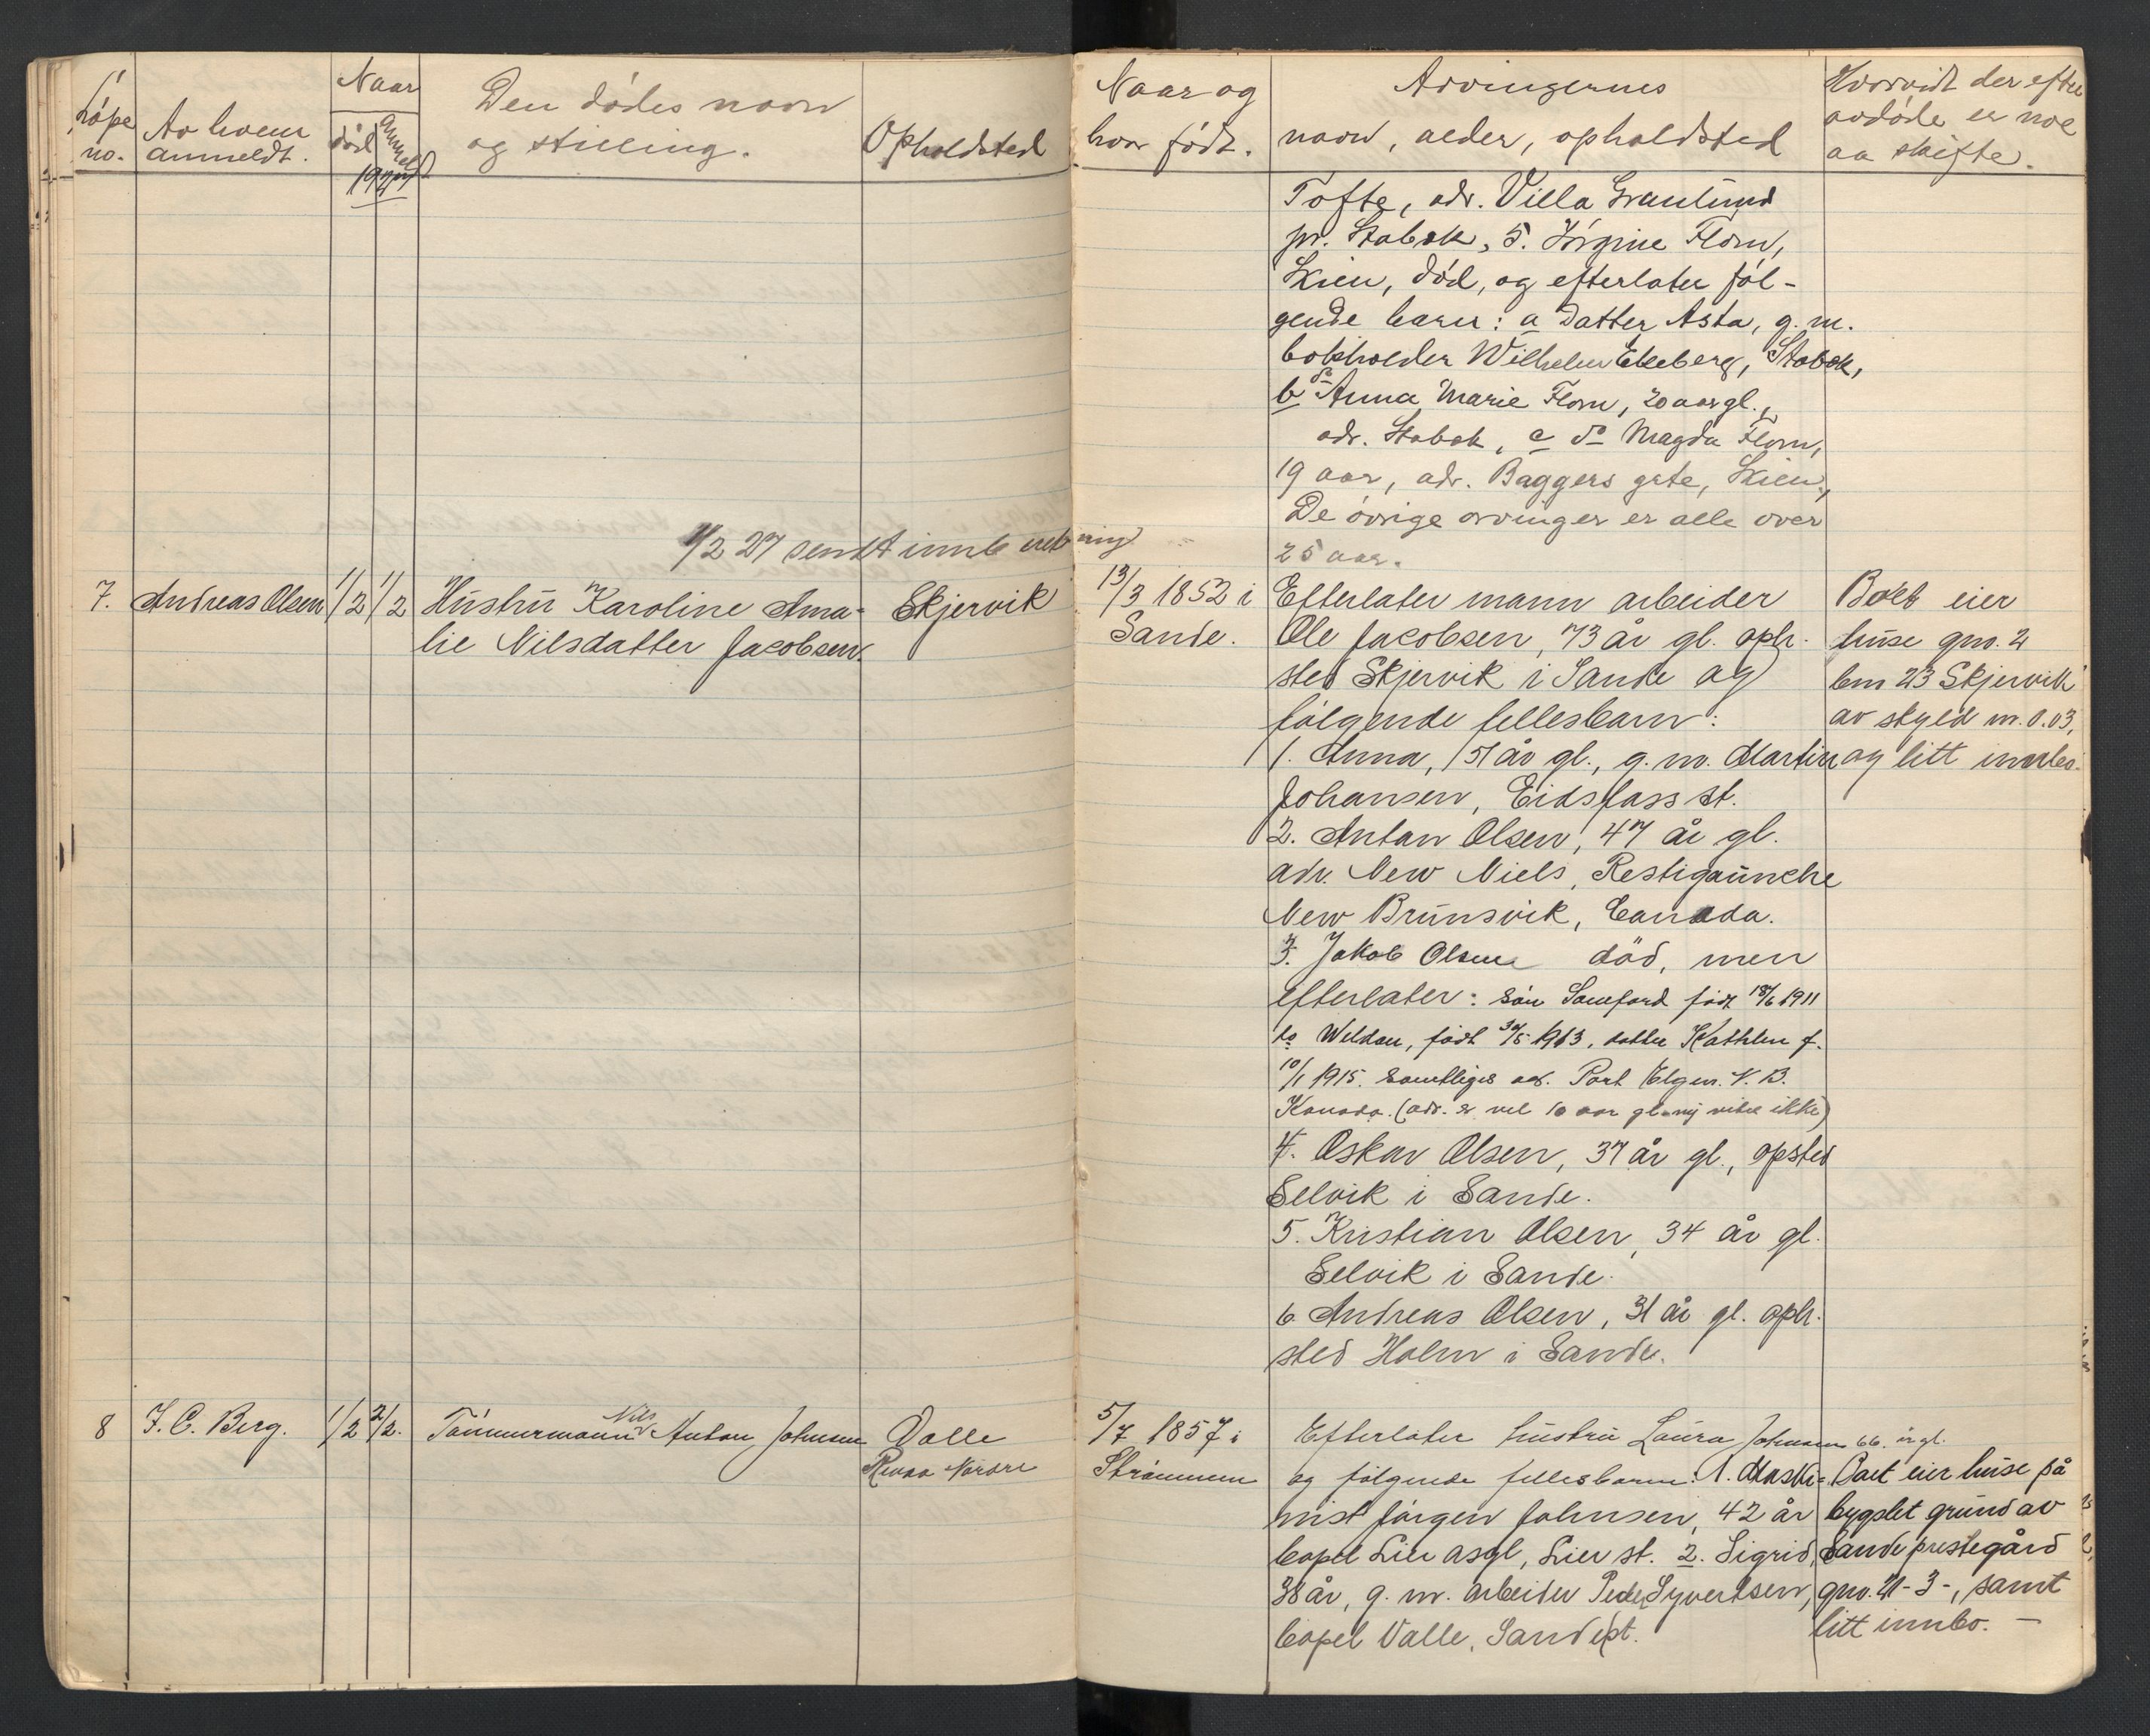 Løpe
no.
Av hvem
anmeldt.
Naar
død
anmeldt
1927
Den dødes navn
og stilling.
Opholdsted
Naar og
hvor født.
Arvingernes
navn, alder, opholdsted
Hvorvidt der efter
avdøde er noe
aa skifte.
Tofte, adr. Villa Granlund
pr. Stabek, 5. Jørgine Flom,
Skien, død, og efterlater føl-
gende barn: a datter Asta, g. m.
bokholder Wilhelm Ekeberg, Stabek,
b do Anna Marie Flom, 20 aar gl.,
adr. Stabek, c do Magda Flom,
19 aar, adr. Baggers gate, Skien,
De øvrige arvinger er alle over
25 aar.
1/2 27 sendt innb eretning
7.
Andreas Olsen
1/2
1/2
Hustru Karoline Ama-
lie Nilsdatter Jacobsen.
Skjervik
13/3 1852 i
Sande.
Efterlater mann arbeider
Ole Jacobsen, 73 år gl. oph.
sted Skjervik i Sande og
følgende fellesbarn:
1. Anna, 51 år gl., g. m. Martin
Johansen, Eidsfoss st.
2. Anton Olsen, 47 år gl.
adr. New Niels, Restigaunche
New Brunsvik, Canada.
3. Jakob Olsen død, men
efterlater: søn Sameford født 18/6 1911
do Weldon, født 30/5 1913, datter Kathlen f.
10/1 1915. samtliges adr. Port Elgen. N. B.
Kanada. (adr. er vel 10 aar gl. ny vites ikke)
4. Oskar Olsen, 37 år gl., opsted
Selvik i Sande.
5. Kristian Olsen, 34 år gl.
Selvik i Sande.
6 Andreas Olsen, 31 år gl. oph.
sted Holm i Sande.
Boet eier
huse gno. 2
bno 23 Skjervik
av skyld m. 0.03,
og litt innbo.
8
J. C. Berg.
1/2
2/2.
Tømmermann Nils Anton Johnsen
Valle
Revaa Nordre
5/7 1857 i
Strømmen
Efterlater hustru Laura Johnsen 66 år gl.
og følgende fellesbarn: 1. Maski-
nist Jørgen Johnsen, 42 år
bopel Lier asyl, Lier st. 2. Sigrid,
38 år, g. m. arbeider Peder Syvertsen,
bopel Valle, Sande st.
Boet eier huse på
bygslet grund av
Sande prestegård
gno. 21-3-, samt
litt innbo. —